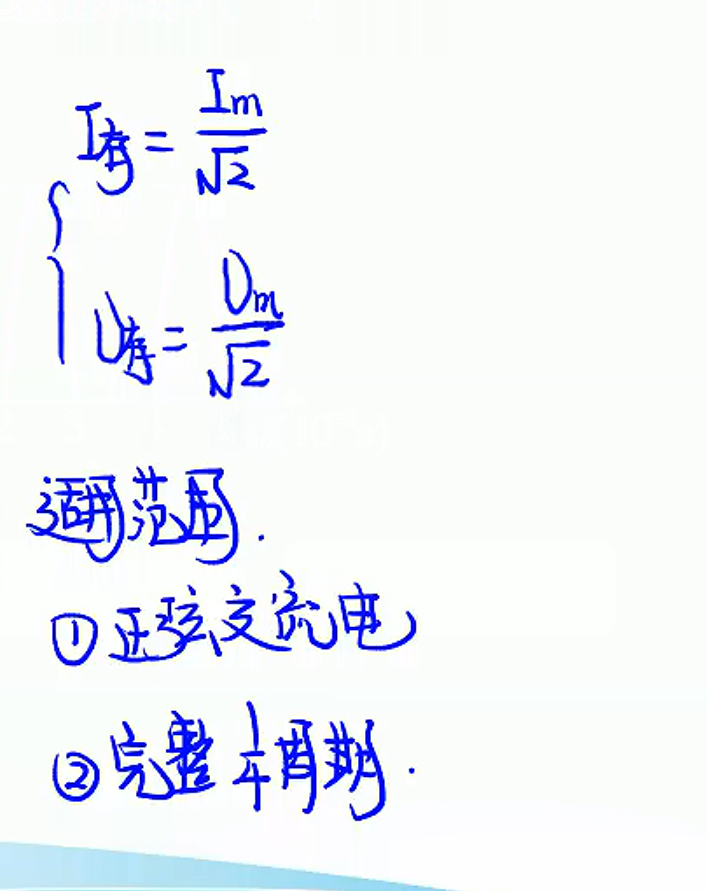 I有 = Im/√2
U有 = Um/√2
适用范围.
①正弦交流电
②完整1/4周期.